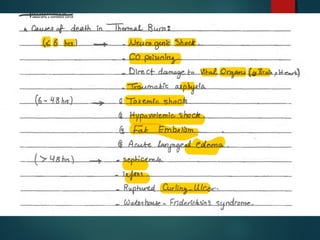 Causes of death in Thermal Burn:
(< 6 hr) → - Neurogenic Shock.
- CO poisoning.
- Direct damage to Vital Organs (Brain, heart)
- Traumatic asphyxia
(6-48 hr) → Toxemic shock
Hypovolemic shock.
Fat Embolism
Acute laryngeal edema.
(> 48 hr) → - septicemia.
- Infexn
- Ruptured Curling Ulcer.
- Waterhouse - Friderichsins syndrome.